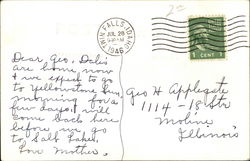 TWIN FALLS, IDAHO
JUL 28
1946
1 CENT 1
Dear Geo, Dales
are home now
& we expect to go
to Yellowstone Sun.
morning for a
few days. Will
come back here
before we go
to Salt Lake.
Love Mother.
Geo H Applegate
1114-18 Str
Moline
Illinois